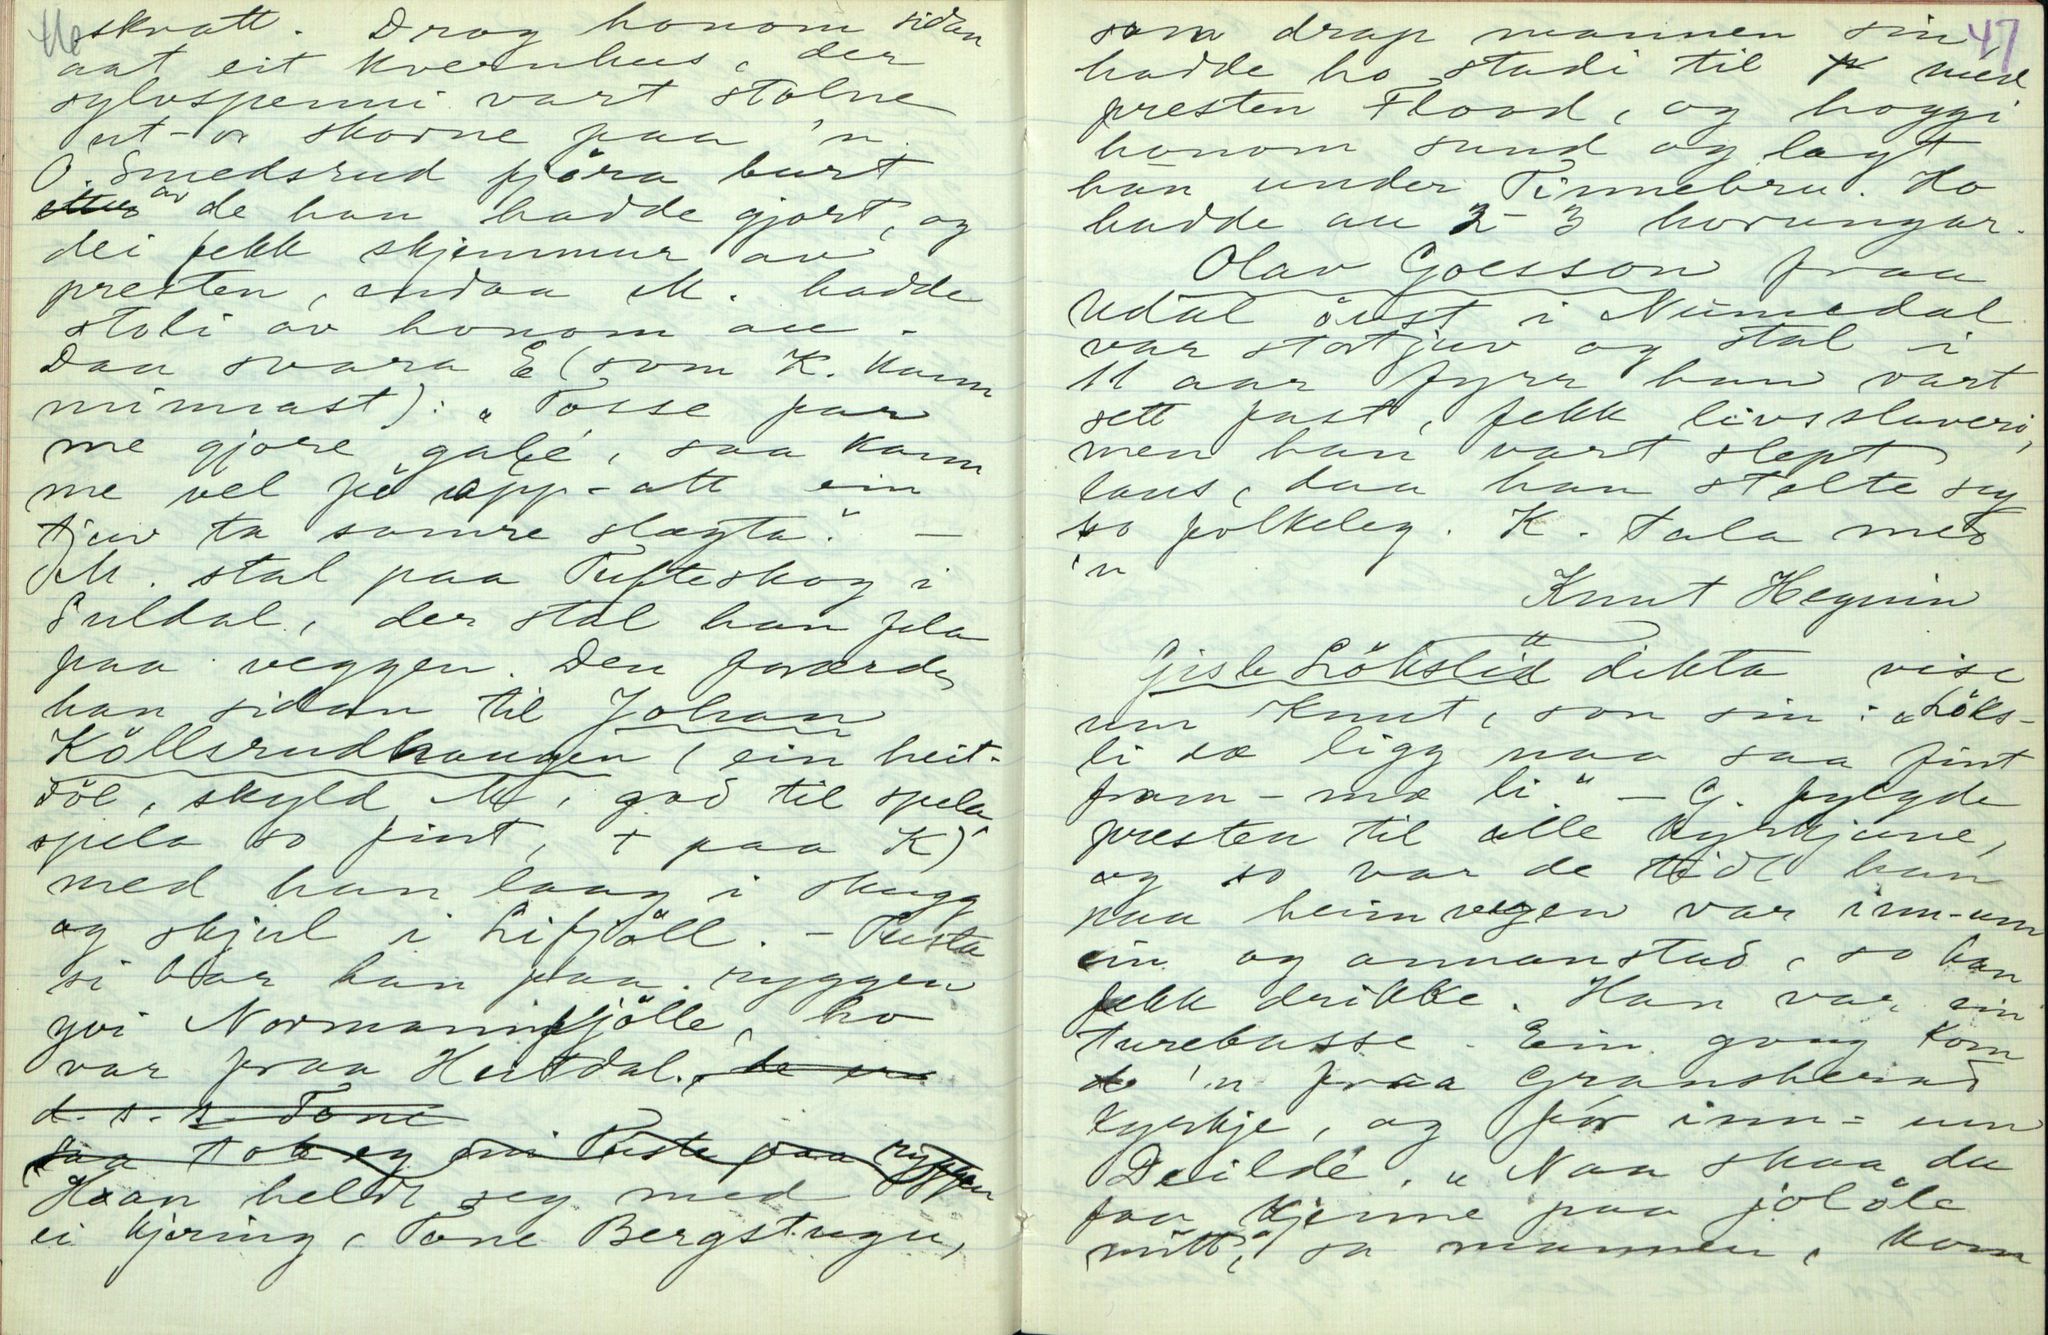 46
skratt. Drog honom sidan
aat eit kvernhus, der
sylvspenni vart stolne
ut-or skorne paa 'n.
O. Smedsrud fjöra burt
av de han hadde gjort, og
dei fekk skjemmur av
presten, endaa M. hadde
stoli av honom au.
Daa svara E (som K. kann
minnast): "Tosse fær
me gjore gale, saa kann
me vel få upp-att ein
tjuv ta somre slagta." —
M. stal paa Tufteskog i
Luldal, der stal han fela
paa veggen. Den færde
han sidan til Johan
Köllsrudhaugen (ein heit-
föl, skyld M, god til spela,
spela so fint, + paa K)
med han laag i skugg
og skjul i Lifjöll. – Tusta
si bar han paa ryggen
yvi Normannsfjölle, ho
var fraa Hutdal. de er
d. s. s. Tone
saa tok eg mi Tuste paa ryggen
Han heldt seg med
ei kjering, Tone Bergstugu,
47
som drap mannen sin,
hadde ho stadi til med
presten Flood, og hoggi
honom sund og lagt
han under Tinnebru. Ho
hadde au 2-3 horungar.
Olav Goesson fraa
Udal övst i Numedal
var stortjuv og stal i
11 aar fyrr han vart
sett fast, fekk livsslaveri,
men han vart slept
laus, daa han stelte seg
so folkeleg. K. tala med
'n
Knut Hegnin
Gisle Lökslid dikta vise
um Knut, son sin: "Löks-
li dæ ligg naa saa fint
fram-mæ li" – G. fylgde
presten til alle kyrkjune,
og so var de tidt han
paa heimvegen var inn-um
ein og annanstad, so han
fekk drikke. Han var ein
turebasse. Ein gong kom
de 'n fraa Gransherad
kyrkje, og for inn-um
Deildé. "Naa skaa du
faa kjenne paa jolöle
mitt," sa mannen, kom